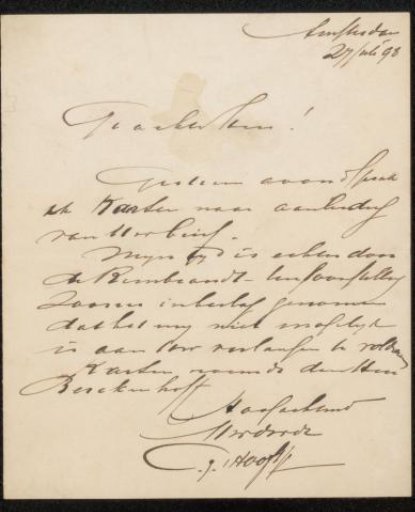 Amsterdam
27 Juli 98
Geachte Heer!
Gisteren avond sprak
ik Karsten naar aanleiding
van Uw brief.
Mijn tijd is echter door
de Rembrandt-tentoonstelling
zoozeer in beslag genomen
dat het mij niet mogelijk
is aan Uw verlangen te voldoen
Karsten noemde den Heer
Berckenhoff
Hoogachtend
Uwdwdr
C.G. 't Hooft